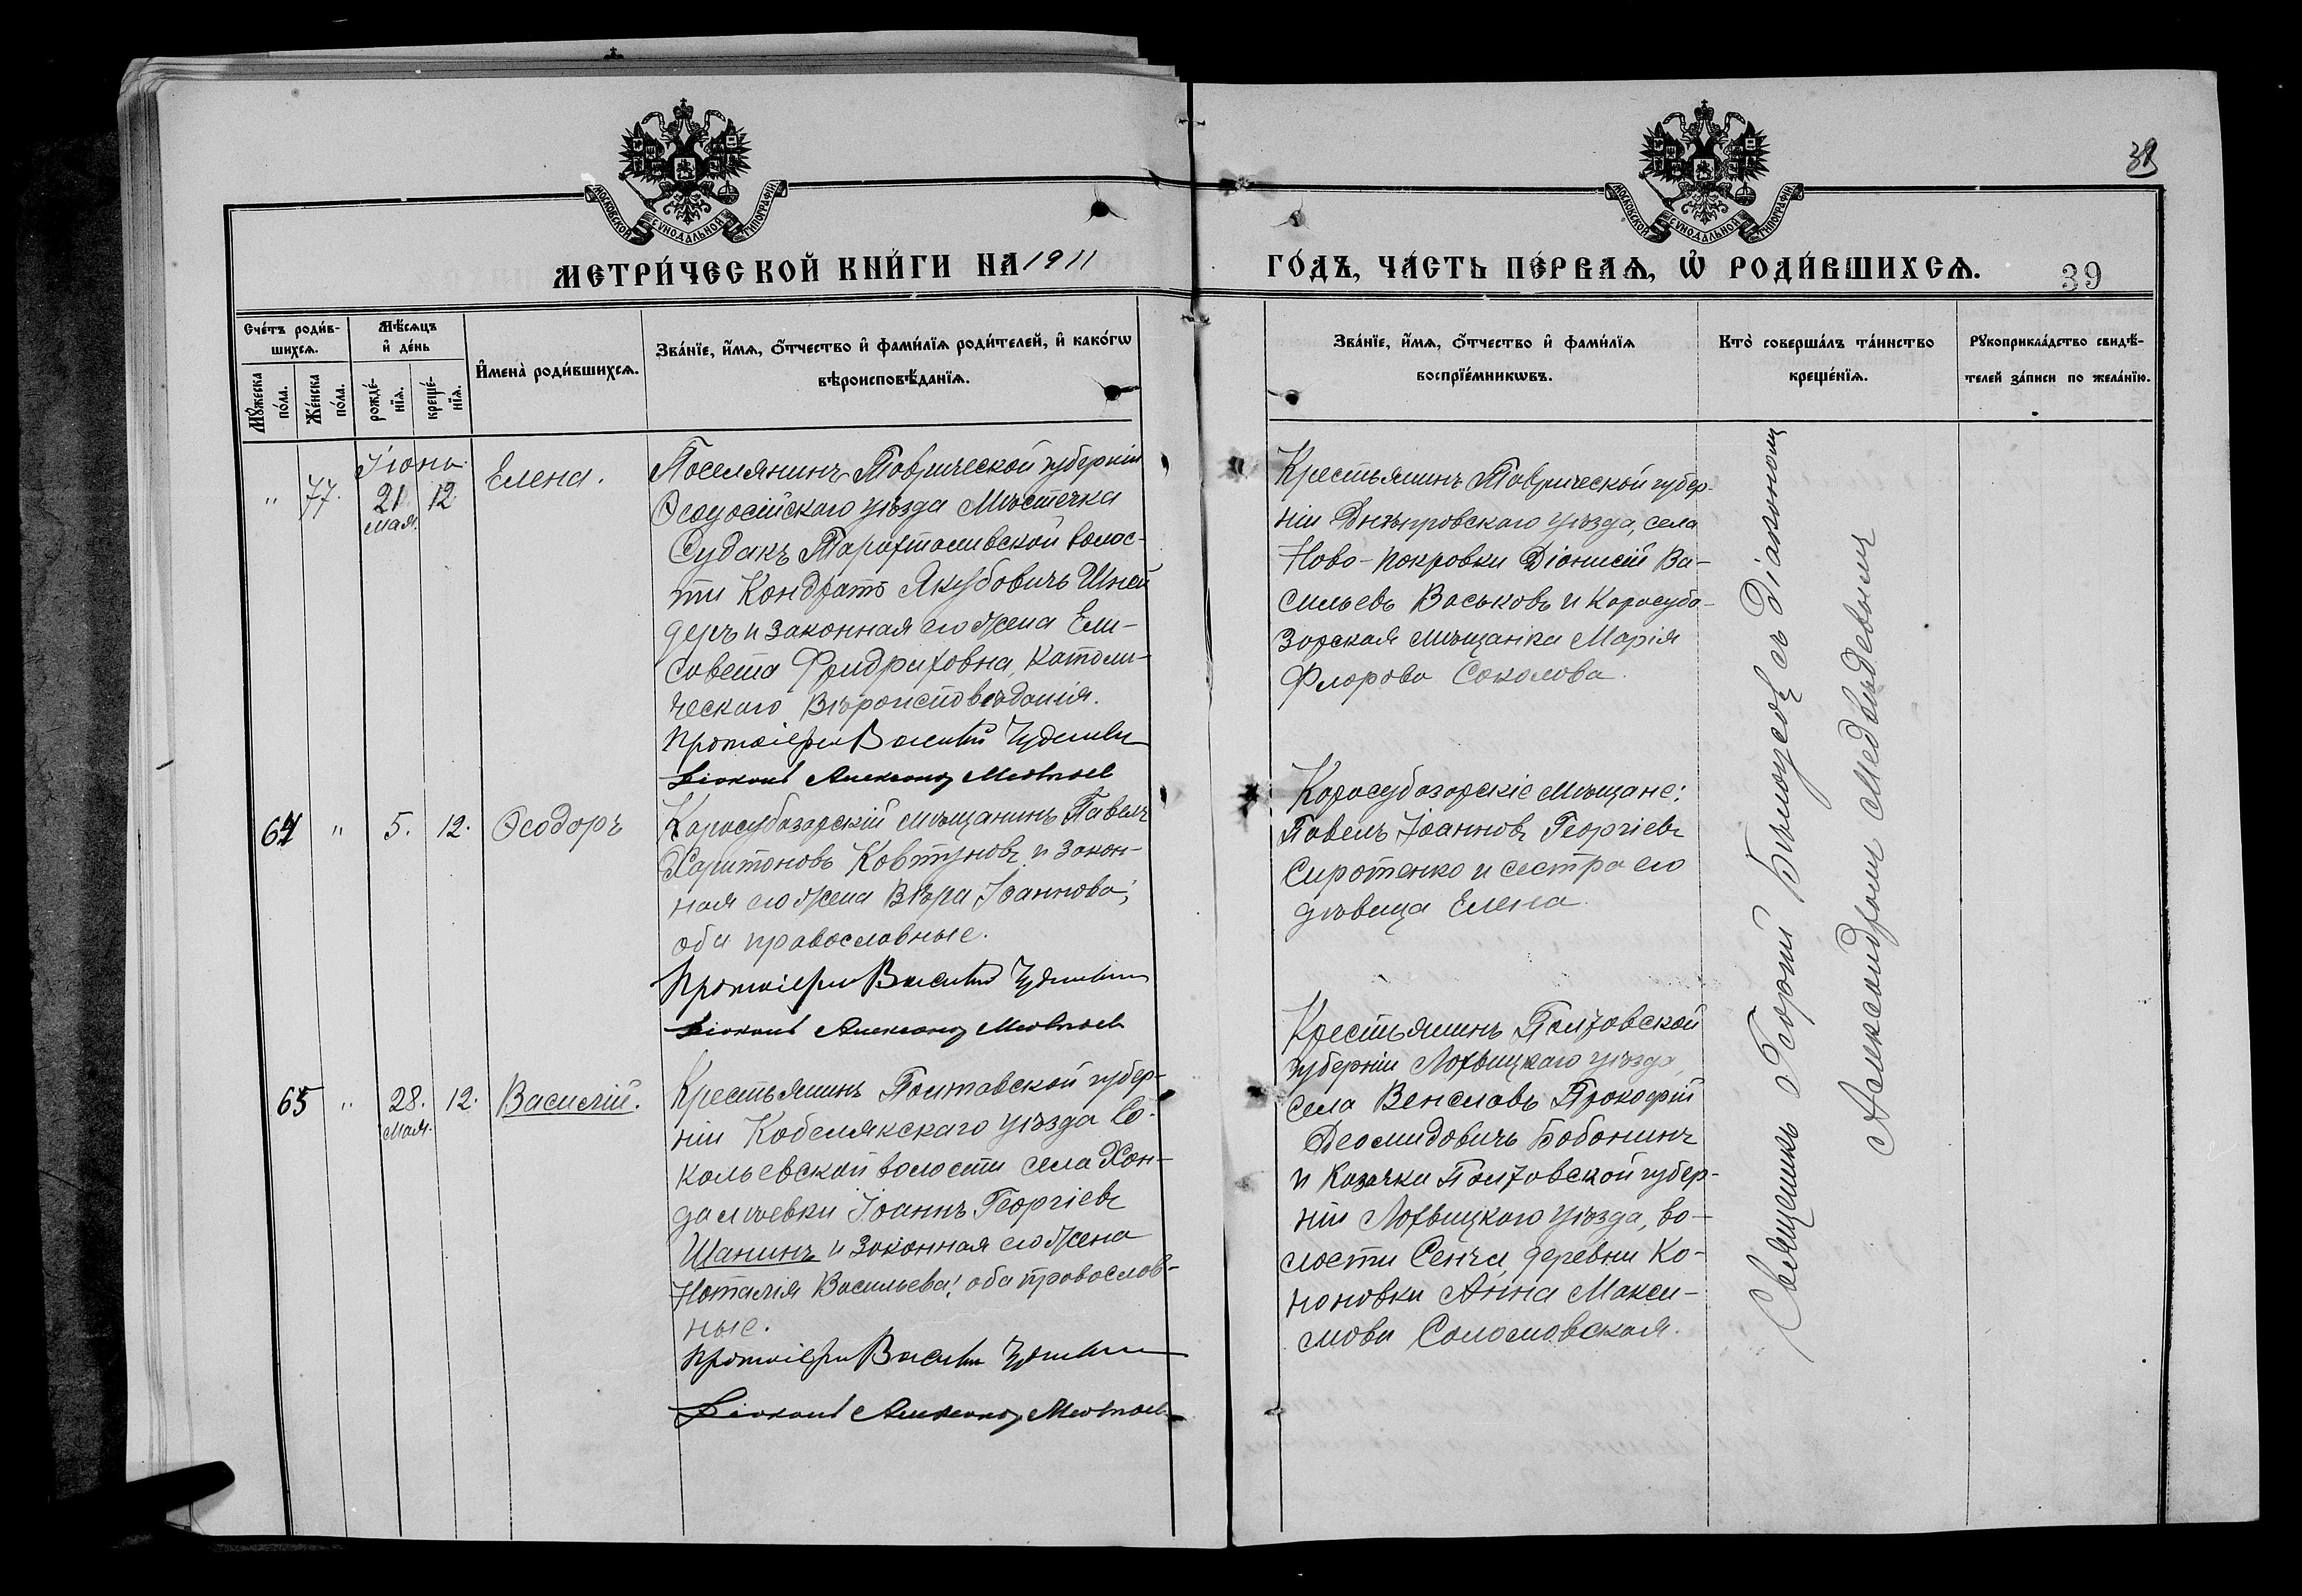 39
МОСКОВСКОЙ СѴНОДАЛЬНОЙ ТИПОГРАФІИ
МОСКОВСКОЙ СѴНОДАЛЬНОЙ ТИПОГРАФІИ
МЕТРИ́ЧЕСКОЙ КНИ́ГИ НА 1911
ГО́ДЪ, ЧА́СТЬ ПЕ́РВАѦ, Ѡ҆ РОДИ́ВШИХСѦ.
39
Сче́тъ роди́в-
шихсѧ.
Мꙋ́жеска
по́ла.
Же́нска
по́ла.
Мѣ́сѧцъ
и҆ де́нь
рожде́-
нїѧ.
креще́-
нїѧ.
И҆мена̀ роди́вшихсѧ.
Зва́нїе, и҆́мѧ, ѻ҆́тчество и҆ фами́лїѧ роди́телей, и҆ како́гѡ
вѣроисповѣ́данїѧ.
Зва́нїе, и҆́мѧ, ѻ҆́тчество и҆ фами́лїѧ
воспрїе́мникѡвъ.
Кто̀ соверша́лъ та́инство
креще́нїѧ.
Рꙋкоприкла́дство свидѣ́-
телей за́писи по жела́нїю.
Іюнь
" 77. 21 12
мая.
Елена.
Поселянинъ Таврической губерніи
Ѳеодосійскаго уѣзда Мѣстечка
Судакъ Таракташской волос-
ти Кондратъ Якубовичъ Шней
деръ и законная его жена Ели-
савета Фридриховна, католи-
ческаго Вѣроисповѣданія.
Протоіерей Василій
Діаконъ Александръ Медвѣдевъ
Крестьянинъ Таврической губер-
ніи Днѣпровскаго уѣзда, села
Ново-Покровки Діонисій Ва-
сильевъ Васьковъ и Карасуба-
зорская мѣщанка Марія
Флорова Соколова.
64 " 5. 12. Ѳеодоръ
Карасубазарскій мѣщанинъ Павелъ
Харитоновъ Ковтуновъ и закон-
ная его жена Вѣра Іоаннова;
оба православные.
Протоіерей Василій
Діаконъ Александръ Медвѣдевъ
Карасубазарскіе мѣщане:
Павелъ Іоанновъ Георгіевъ
Сиротенко и сестра его
дѣвица Елена.
65 " 28. 12. Василій.
мая.
Крестьянинъ Полтавской губер-
ніи Кобелякскаго уѣзда Со-
кольевской волости села Хан-
далѣевки Іоаннъ Георгіевъ
Шанинъ и законная его жена
Наталія Васильева; оба православ-
ные.
Протоіерей Василій
Діаконъ Александръ Медвѣдевъ
Крестьянинъ Полтавской
губерніи Лохвицкаго уѣзда,
села Венславъ Прокофій
Деомидовичъ Бабанинъ
и Казачка Полтавской губер-
ніи Лохвицкаго уѣзда, во-
лости Сенча, деревни Ко-
ноновки Анна Макси-
мова Соломовская.
Священникъ Георгій Бѣлоусовъ съ Діакономъ
Александромъ Медвѣдевымъ